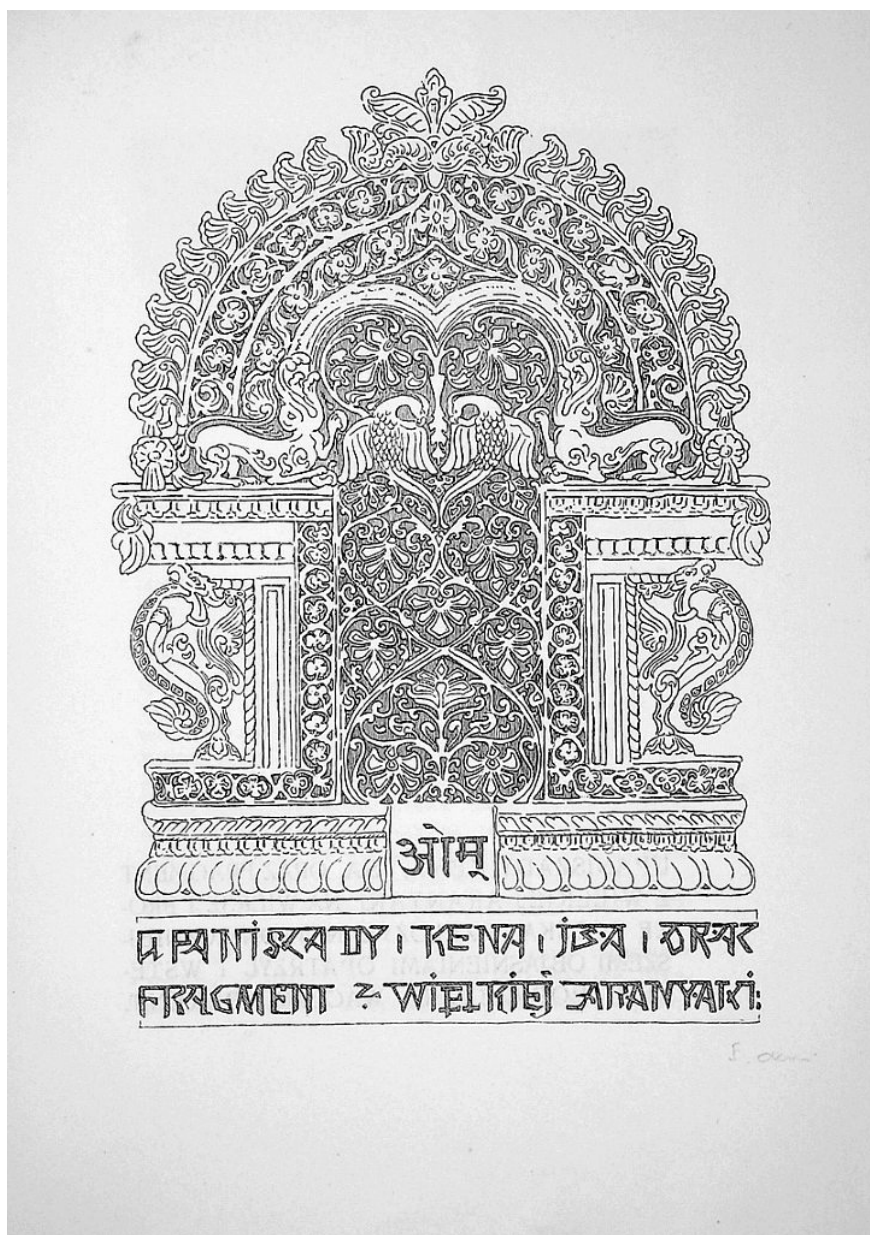 ओम्
UPANISZADY · KENA · IŚA · ORAZ
FRAGMENT Z WIELKIEJ ARANYAKI: